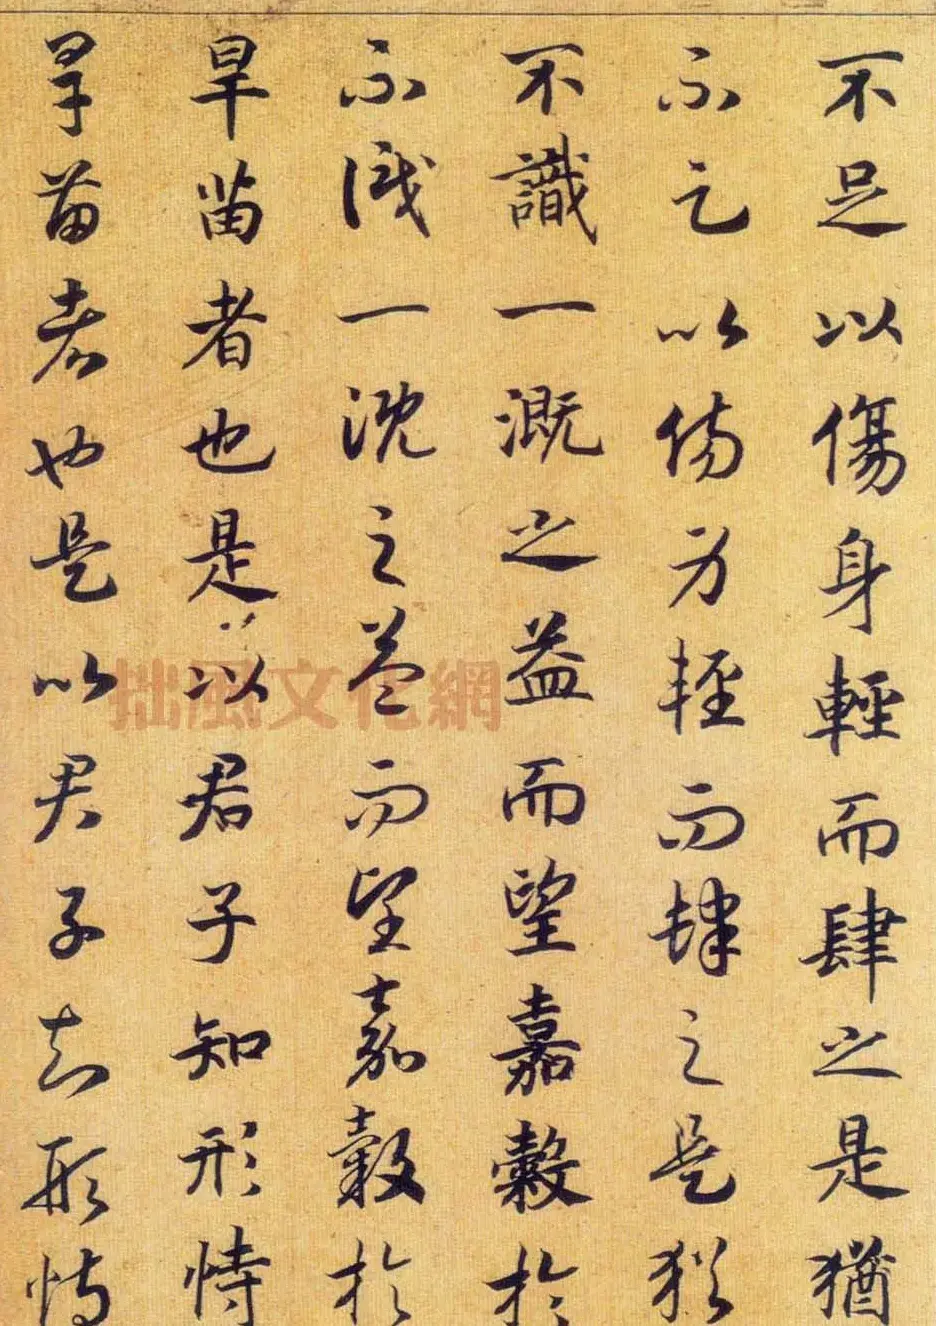 不足以傷身輕而肆之是猶
不足以傷身輕而肆之是猶
不識一溉之益而望嘉穀於
不識一溉之益而望嘉穀於
旱苗者也是以君子知形恃
旱苗者也是以君子知形恃
拙風文化網